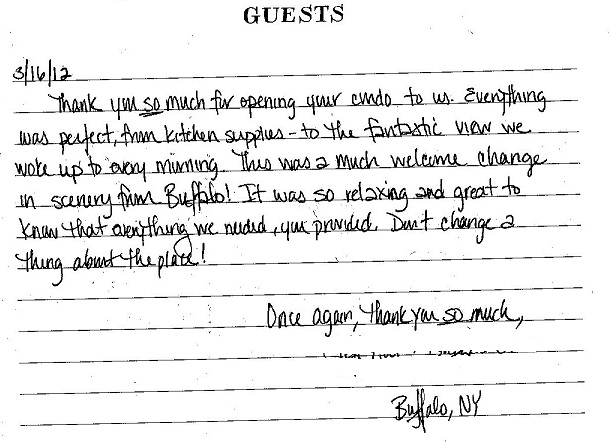 GUESTS
3/16/12
Thank you so much for opening your condo to us. Everything
was perfect, from kitchen supplies - to the fantastic view we
woke up to every morning. This was a much welcome change
in scenery from Buffalo! It was so relaxing and great to
know that everything we needed, you provided. Don't change a
thing about the place!
Once again, thank you so much,
Buffalo, NY